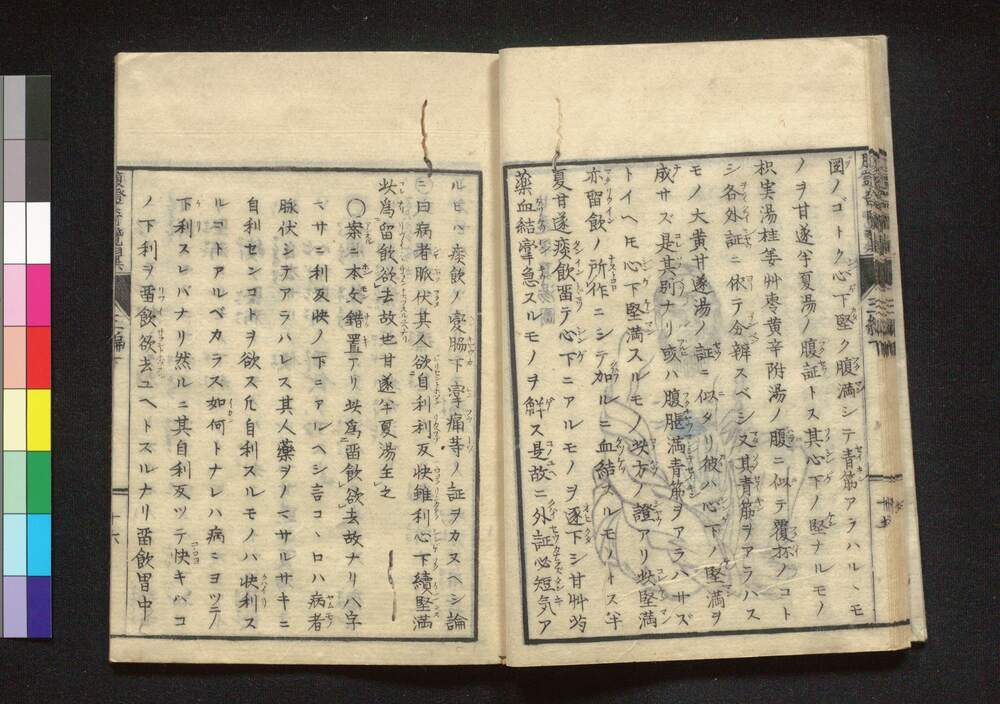 図ノゴトク心下堅ク腹満シテ青筋アラハルヽモ
ノヲ甘遂半夏湯ノ腹証トス其心下ノ堅ナルモノ
枳実湯桂姜艸枣黄辛附湯ノ腹ニ似テ覆杯ノコト
シ各外証ニ依テ弁スベシ又其青筋ヲアラハス
モノ大黄甘遂湯ノ証ニ似タリ彼ハ心下ノ堅満ヲ
成サズ是其別ナリ或ハ腹脹満青筋ヲアラハサズ
トイヘ𪜈心下堅満スルモノ此方ノ證アリ此堅満
亦留飲ノ所作ニシテ加ルニ血結スルモノトス半
夏甘遂痰飲畱テ心下ニアルモノヲ逐下シ甘艸芍
薬血結攣急スルモノヲ解ス是故ニ外証必短気ア
ルヒハ痰飲ノ変腸下攣痛等ノ証ヲカヌヘシ論
ニ曰病者脈伏其人欲自利利反快雖利心下續堅満
此為留飲欲去故也甘遂半夏湯主之
〇案ニ本文錯置アリ此為畱飲欲去故ナリ八字
マサニ利反快ノ下ニアルヘシ言コヽロハ病者
脉伏シテアラハレス其人藥ヲノマサルサキニ
自利センコトヲ欲ス凡自利スルモノハ快利ス
ルコトアルベカラス如何トナレハ病ニヨツテ
下利スレバナリ然ルニ其自利反ツテ快キハコ
ノ下利ヲ畱飲欲去ユヘトスルナリ畱飲胃中
十六